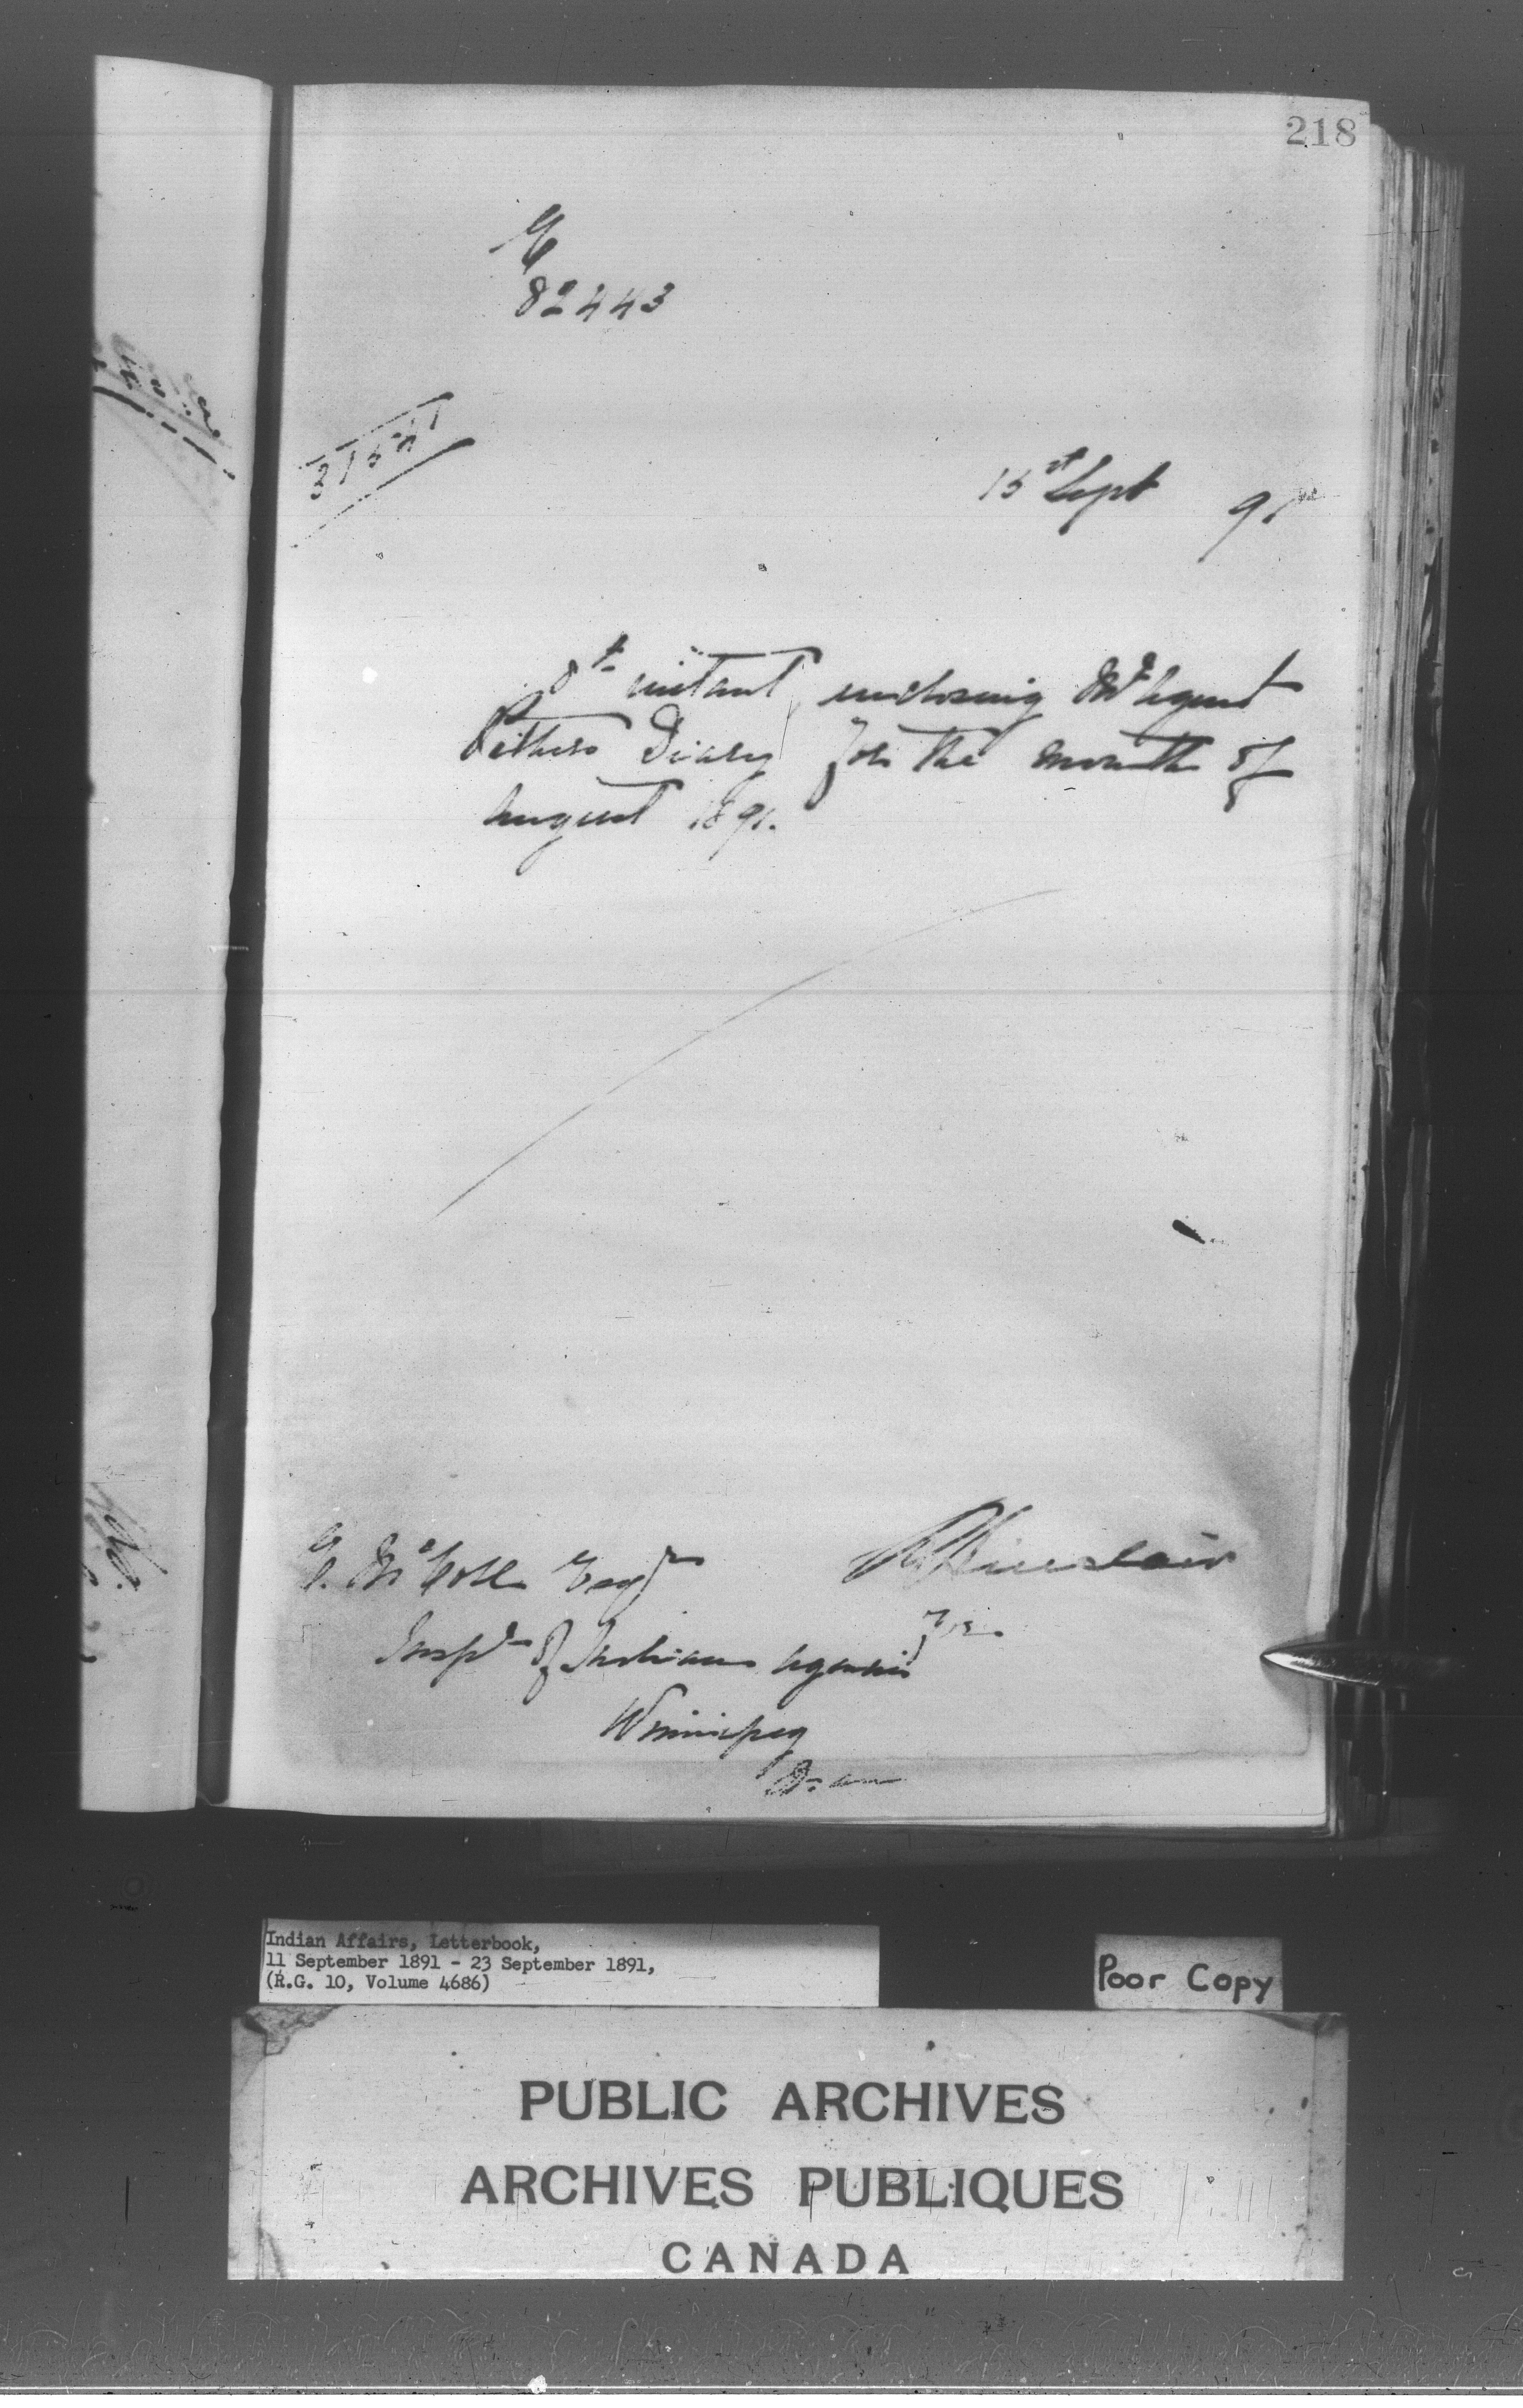 218
82443
15 Sept 91
8th instant, enclosing Mr Agent
Pithers Diary for the month of
August 1891.
E. McColl Esqr
R Sinclair
for
Inspr of Indian Agencies
Winnipeg
Man
Indian Affairs, Letterbook,
11 September 1891 - 23 September 1891,
(R.G. 10, Volume 4686)
Poor Copy
PUBLIC ARCHIVES
ARCHIVES PUBLIQUES
CANADA